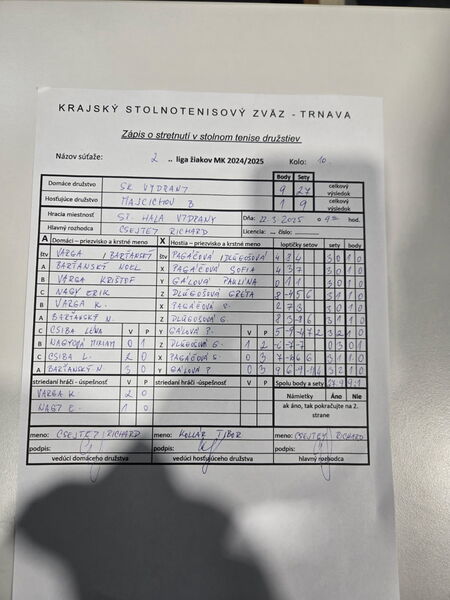 KRAJSKÝ STOLNOTENISOVÝ ZVÄZ - TRNAVA
Zápis o stretnutí v stolnom tenise družstiev
Názov súťaže: 2 .. liga žiakov MK 2024/2025 Kolo: 10
Body Sety
Domáce družstvo SK VYDRANY 9 27 celkový výsledok
Hosťujúce družstvo MAJCICHOV B 1 9 celkový výsledok
Hracia miestnosť ŠP. HALA VYDRANY Dňa: 22.3 2025 o hod.
Hlavný rozhodca CSEJTEY RICHARD Licencia: ... číslo:
A Domáci - priezvisko a krstné meno X Hostia - priezvisko a krstné meno loptičky setov sety body
štv VARGA BARTANSKÝ štv PAGÁČOVÁ DLÚGOŠOVÁ 4 8 4 3 0 1 0
A BARTANSKÝ NOEL X PAGÁČOVÁ SOFIA 4 3 7 3 0 1 0
B VARGA KRIŠTOF Y GÁLOVÁ PAULÍNA 0 1 1 3 0 1 0
C NAGY ERIK Z DLÚGOŠOVÁ GRÉTA 3 1 1 0
B VARGA K. X PAGÁČOVÁ S. 2 7 3 3 0 1 0
A BARTANSKÝ N. Z DLÚGOŠOVÁ G. 3 1 1 0
C CSIBA LÉNA V P Y GÁLOVÁ P. V P 3 2 1 0
B NAGYOVÁ MIRIAM 0 1 Z DLÚGOŠOVÁ G. 1 2 0 3 0 1
C CSIBA L. 2 0 X PAGÁČOVÁ S. 0 3 3 1 1 0
A BARTANSKÝ N 3 0 Y GÁLOVÁ P 0 3 3 2 1 0
striedaní hráči - úspešnosť V P striedaní hráči - úspešnosť V P Spolu body a sety 27 9 9 1
VARGA K 2 0 Námietky Áno Nie
NAGY E. 1 0 ak áno, tak pokračujte na 2. strane
meno: CSEJTEY RICHARD meno: KOLLÁR TIBOR meno: CSEJTEY RICHARD
podpis: podpis: podpis:
vedúci domáceho družstva vedúci hosťujúceho družstva hlavný rozhodca